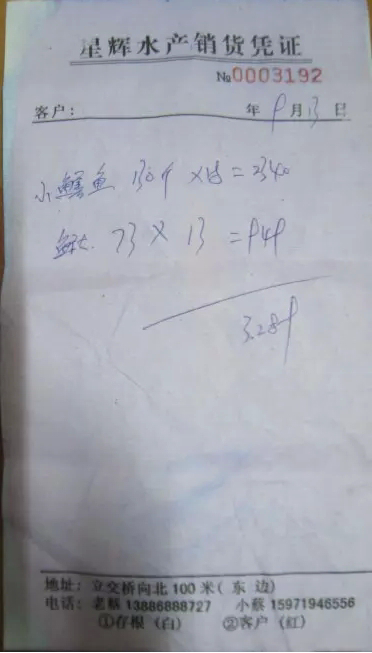 星辉水产销货凭证
№0003192
客户： 年 9 月 13 日
小鳝鱼 130斤 ×18=2340
73 × 13 =949
3289
地址：立交桥向北100米(东边)
电话：老蔡 13886888727 小蔡 15971946556
①存根(白) ②客户(红)